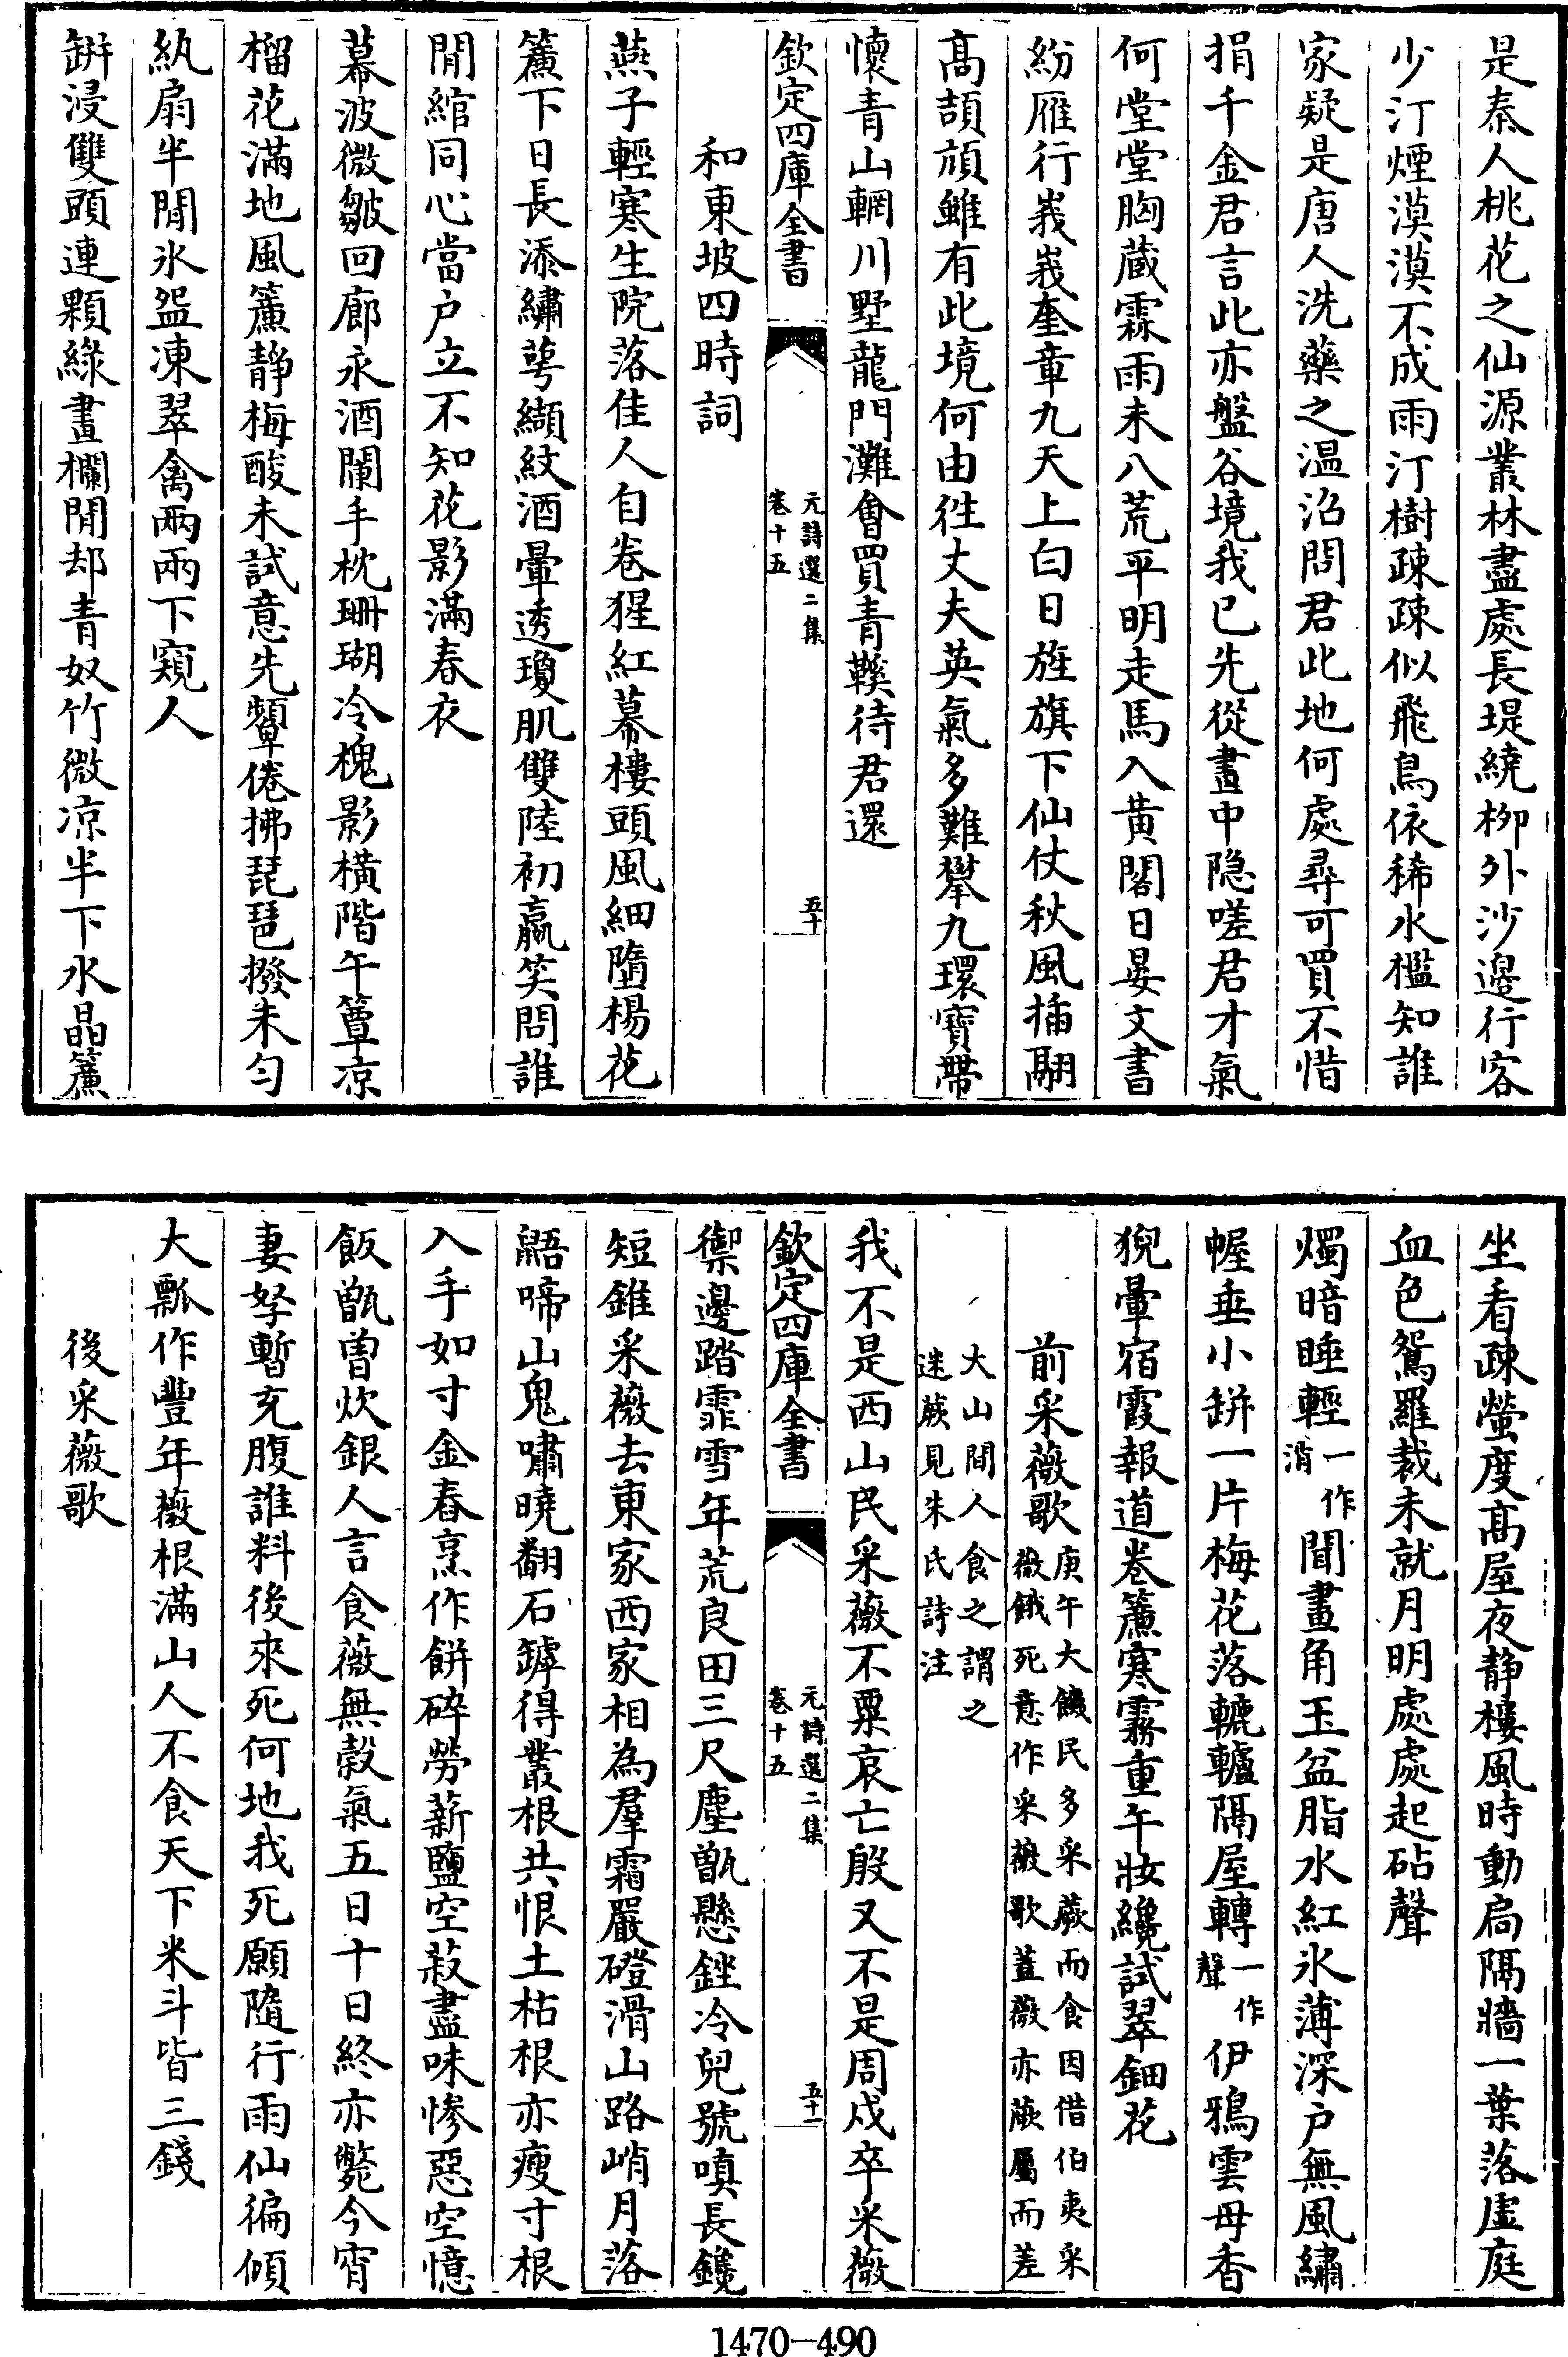 是秦人桃花之仙源叢林盡處長堤繞柳外沙邊行客
少汀煙漠漠不成雨汀樹疎疎似飛鳥依稀水檻知誰
家疑是唐人洗藥之温沼問君此地何處尋可買不惜
捐千金君言此亦盤谷境我已先從畫中隐嗟君才氣
何堂堂胸藏霖雨未八荒平明走馬入黄閣日晏文書
紛雁行峩峩奎章九天上白日旌旗下仙仗秋風插翮
髙頡頏雖有此境何由徃丈夫英氣多難攀九環寳帶
懷青山輞川墅龍門灘㑹買青鞵待君還
欽定四庫全書
元詩選二集
卷十五
五十
和東坡四時詞
燕子輕寒生院落佳人自卷猩紅幕樓頭風細墮楊花
簾下日長添繡萼纈紋酒暈透瓊肌雙陸初贏笑問誰
閒綰同心當户立不知花影滿春衣
幕波微皺回廊永酒闌手枕珊瑚冷槐影横階午簟凉
榴花滿地風簾静梅酸未試意先顰倦拂琵琶撥未匀
紈扇半閒氷盌凍翠禽兩兩下窺人
缾浸雙頭連顆綠畫欄閒却青奴竹微凉半下水晶簾
坐看疎螢度髙屋夜静樓風時動扃隔牆一葉落虛庭
血色鴛羅裁未就月明處處起砧聲
燭暗睡輕一作消聞畫角玉盆脂水紅氷薄深户無風繡
幄垂小缾一片梅花落轆轤隔屋轉一作聲伊鴉雲母香
猊暈宿霞報道卷簾寒霧重午妝纔試翠鈿花
前采薇歌庚午大饑民多采蕨而食因借伯夷采
薇餓死意作采薇歌葢薇亦蕨屬而差
大山間人食之謂之
迷蕨見朱氏詩注
我不是西山民采薇不粟哀亡殷又不是周戍卒采薇
欽定四庫全書
元詩選二集
卷十五
五十一
禦邊踏霏雪年荒良田三尺塵甑懸銼冷兒號嗔長鑱
短錐采薇去東家西家相為羣霜嚴磴滑山路峭月落
鼯啼山鬼嘯曉翻石罅得叢根共恨土枯根亦瘦寸根
入手如寸金舂烹作餅碎勞薪鹽空菽盡味慘惡空憶
飯甑曽炊銀人言食薇無穀氣五日十日終亦斃今宵
妻孥暫充腹誰料後來死何地我死願隨行雨仙徧傾
大瓢作豐年薇根滿山人不食天下米斗皆三錢
後采薇歌
1470-490